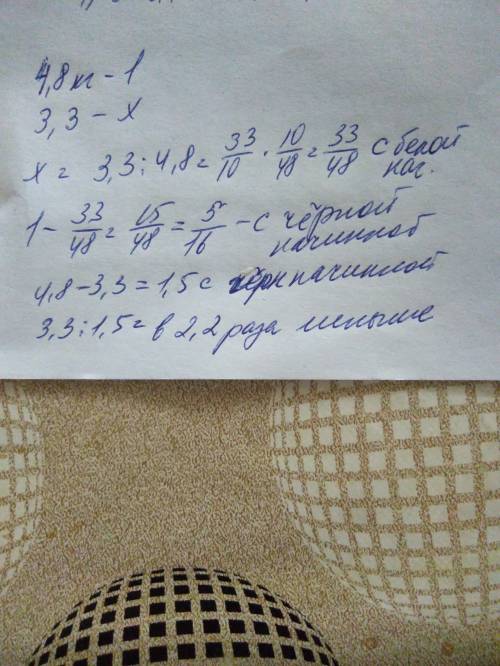 4,8 кг - 1
3,3 - x
x = 3,3 : 4,8 = 33/10 · 10/48 = 33/48 с белой нач.
1 - 33/48 = 15/48 = 5/16 - с чёрной начинкой
4,8 - 3,3 = 1,5 с начинкой
3,3 : 1,5 = в 2,2 раза меньше